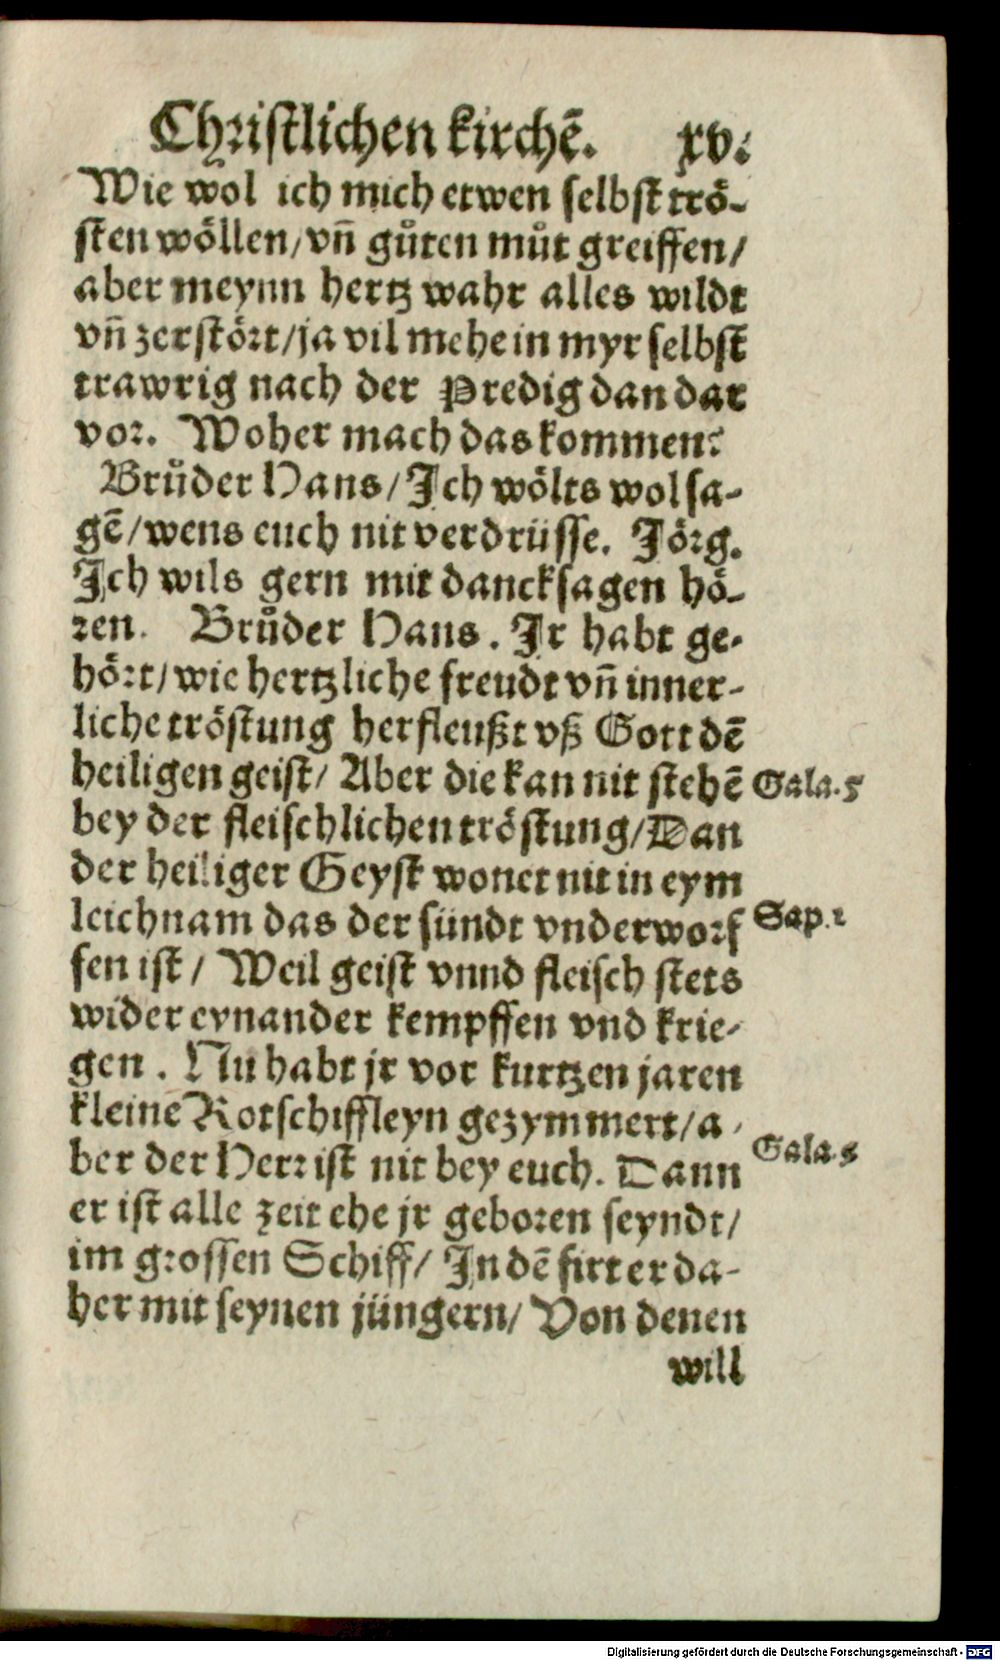 Christlichen kirchẽ. xv.
Wie wol ich mich etwen selbst trö-
sten wöllen/ vñ gůten můt greiffen/
aber meynn hertz wahr alles wildt
vñ zerstört/ ja vil mehe in myr selbst
trawrig nach der Predig dan dar
vor. Woher mach das kommen?
Brůder Hans/ Ich wölts wol sa-
gẽ/ wens euch nit verdrüsse. Jörg.
Ich wils gern mit dancksagen hö-
ren. Brůder Hans. Ir habt ge-
hört/ wie hertzliche freudt vñ inner-
liche tröstung herfleußt vß Gott dẽ
heiligen geist/ Aber die kan nit stehẽ Gala. 5
bey der fleischlichen tröstung/ Dan
der heiliger Geyst wonet nit in eym
leichnam das der sündt vnderworf Sap. 1
fen ist/ Weil geist vnnd fleisch stets
wider eynander kempffen vnd krie-
gen. Nu habt jr vor kurtzen jaren
kleine Rotschiffleyn gezymmert/ a-
ber der Herr ist nit bey euch. Dann Gala. 5
er ist alle zeit ehe jr geboren seyndt/
im grossen Schiff/ In dẽ firt er da-
her mit seynen jüngern/ Von denen
will
Digitalisierung gefördert durch die Deutsche Forschungsgemeinschaft - DFG